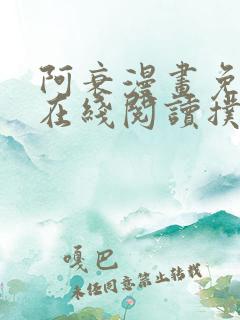 阿衰漫畫免
在綫閱讀撲
嘎巴
未經同意禁止轉載